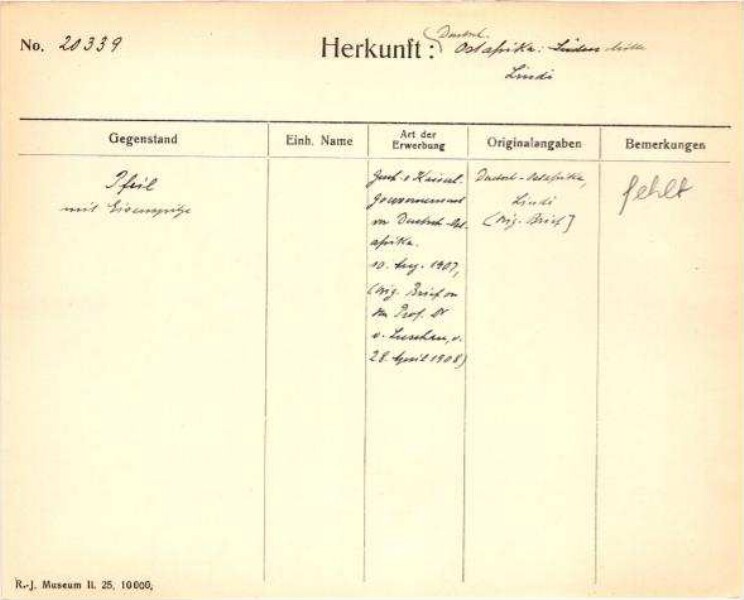 No. 20339
Herkunft: Deutsch. Ostafrika:
Lindi
Gegenstand
Einh. Name
Art der Erwerbung
Originalangaben
Bemerkungen
Pfeil
mit Eisenspitze
Gesch. v. Kaiserl.
Gouvernement
von Deutsch-Ost-
afrika.
10. Aug. 1907,
(Orig. Brief an
den Prof. Dr
v. Luschan, v.
28. April 1908)
Deutsch-Ostafrika,
Lindi
(Orig. Brief]
fehlt
R.-J. Museum II. 25, 10000,